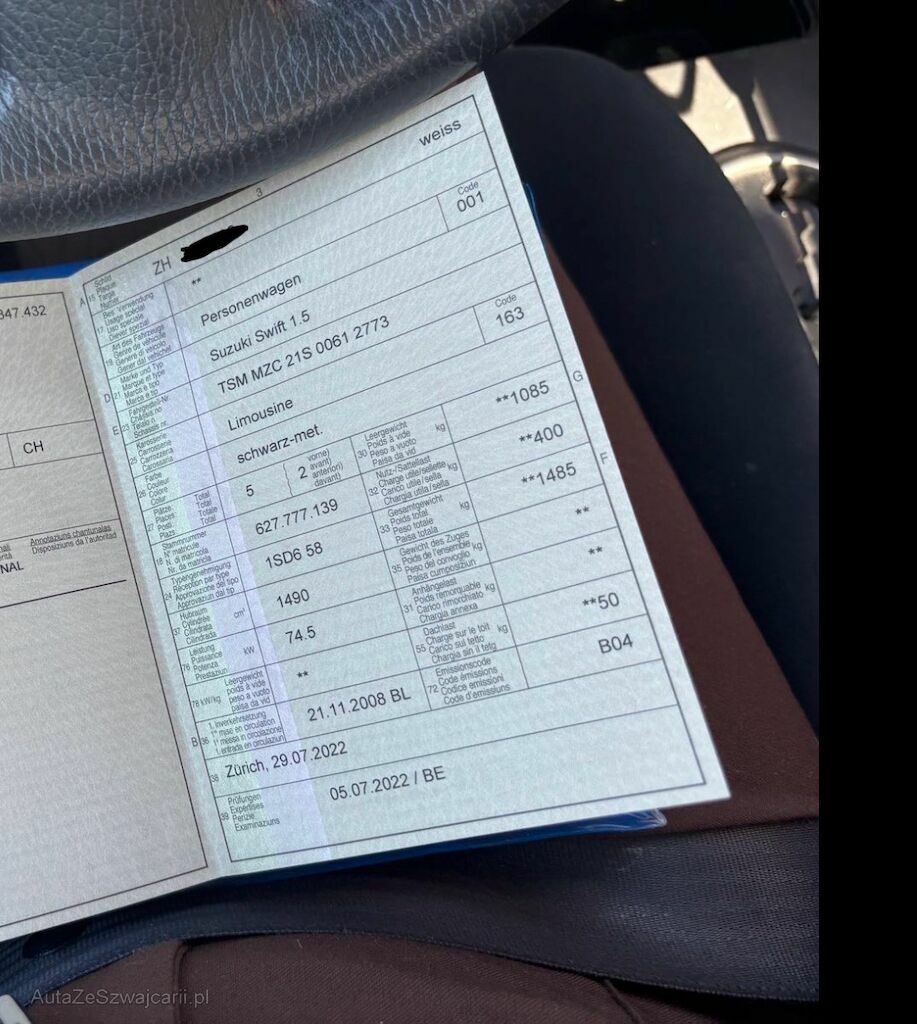 347.432
CH
Annotaziuns chantunalas
Disposiziuns da l'autoritad
NAL
3
A 15 Schild
Plaque
Targa
Numer
ZH
weiss
17 Bes. Verwendung
Usage spécial
Uso speciale
Diever spezial
**
19 Art des Fahrzeugs
Genre de véhicule
Genere di veicolo
Gener dal vehichel
Personenwagen
Code
001
D 21 Marke und Typ
Marque et type
Marca e tipo
Marca e tip
Suzuki Swift 1.5
E 23 Fahrgestell-Nr.
Châssis no
Telaio n.
Schassis nr.
TSM MZC 21S 0061 2773
25 Karosserie
Carrosserie
Carrozzeria
Carossaria
Limousine
Code
163
26 Farbe
Couleur
Colore
Colur
schwarz-met.
27 Plätze Total
Places Total
Posti Totale
Plazs Total
5
( 2 vorne)
avant)
anteriori)
davant)
G
30 Leergewicht
Poids à vide kg
Peso a vuoto
Paisa da vid
**1085
18 Stammnummer
N° matricule
N. di matricola
Nr. da matricla
627.777.139
32 Nutz-/Sattellast
Charge utile/sellette kg
Carico utile/sella
Chargia utila/sella
**400
24 Typengenehmigung
Réception par type
Approvazione del tipo
Approvaziun dal tip
1SD6 58
33 Gesamtgewicht
Poids total kg
Peso totale
Paisa totala
**1485
F
37 Hubraum
Cylindrée cm³
Cilindrata
Cilindrada
1490
35 Gewicht des Zuges
Poids de l'ensemble kg
Peso del convoglio
Paisa cumposiziun
**
76 Leistung
Puissance kW
Potenza
Prestaziun
74.5
31 Anhängelast
Poids remorquable kg
Carico rimorchiato
Chargia annexa
**
78 kW/kg Leergewicht
poids à vide
peso a vuoto
paisa da vid
**
55 Dachlast
Charge sur le toit kg
Carico sul tetto
Chargia sin il tetg
**50
B 36 1. Inverkehrsetzung
1re mise en circulation
1a messa in circolazione
1. entrada en circulaziun
21.11.2008 BL
72 Emissionscode
Code émissions
Codice emissioni
Code d'emissiuns
B04
38 Zürich, 29.07.2022
39 Prüfungen
Expertises
Perizie
Examinaziuns
05.07.2022 / BE
AutaZeSzwajcarii.pl